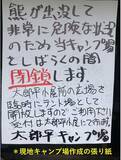 熊が出没して
非常に危険な状況
のため当キャンプ場
としばらくの間
閉鎖します。
太郎平小屋前の広場を
臨時にテント場として
開放しますのでご利用ください
太郎平キャンプ場
*現地キャンプ場作成の張り紙